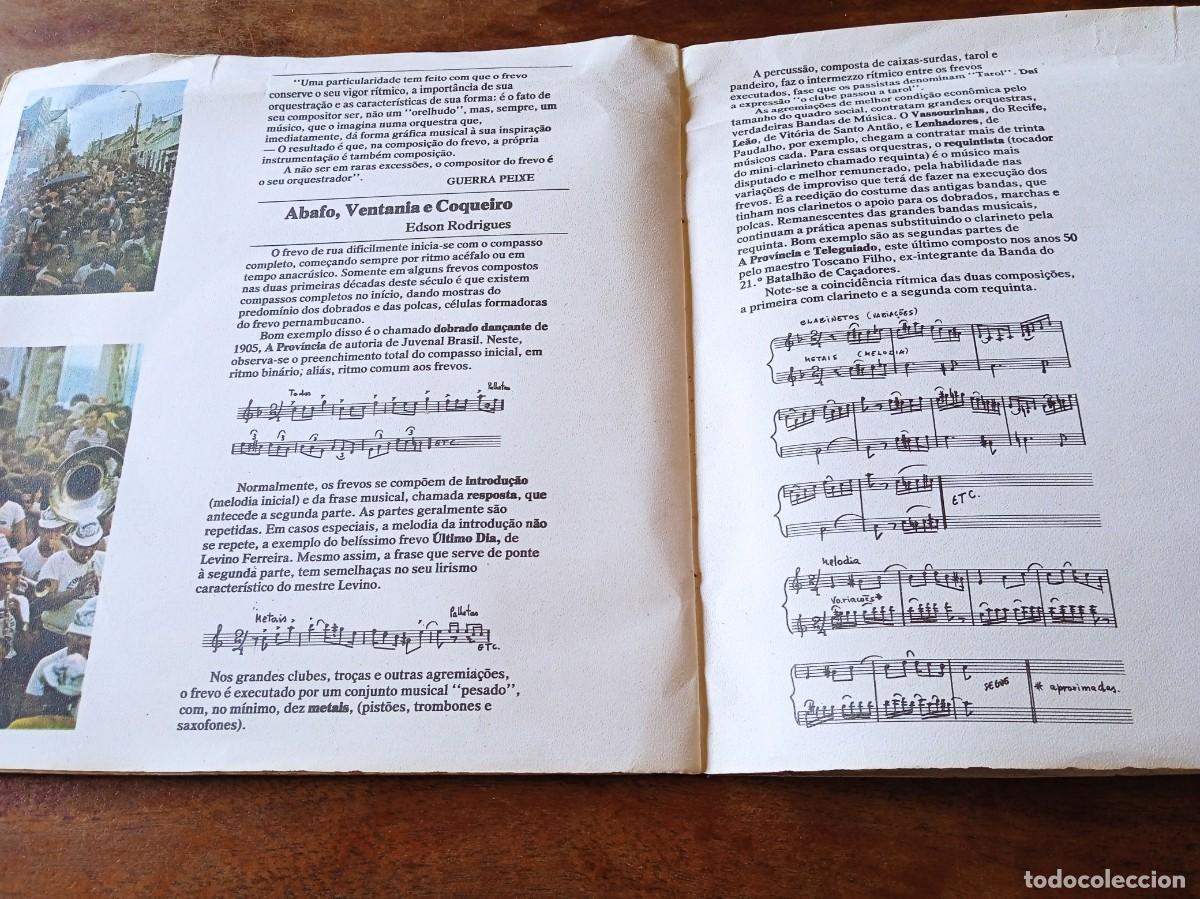 "Uma particularidade tem feito com que o frevo
conserve o seu vigor rítmico, a importância de sua
orquestração e as características de sua forma: é o fato de
seu compositor ser, não um "orelhudo", mas, sempre, um
músico, que o imagina numa orquestra que,
imediatamente, dá forma gráfica musical à sua inspiração
— O resultado é que, na composição do frevo, a própria
instrumentação é também composição.
A não ser em raras excessões, o compositor do frevo é
o seu orquestrador".
GUERRA PEIXE
Abafo, Ventania e Coqueiro
Edson Rodrigues
O frevo de rua dificilmente inicia-se com o compasso
completo, começando sempre por ritmo acéfalo ou em
tempo anacrúsico. Somente em alguns frevos compostos
nas duas primeiras décadas deste século é que existem
compassos completos no início, dando mostras do
predomínio dos dobrados e das polcas, células formadoras
do frevo pernambucano.
Bom exemplo disso é o chamado dobrado dançante de
1905, A Província de autoria de Juvenal Brasil. Neste,
observa-se o preenchimento total do compasso inicial, em
ritmo binário; aliás, ritmo comum aos frevos.
Todos
Palhetas
3 3 3 3 3 3
ETC.
Normalmente, os frevos se compõem de introdução
(melodia inicial) e da frase musical, chamada resposta, que
antecede a segunda parte. As partes geralmente são
repetidas. Em casos especiais, a melodia da introdução não
se repete, a exemplo do belíssimo frevo Último Dia, de
Levino Ferreira. Mesmo assim, a frase que serve de ponte
à segunda parte, tem semelhaças no seu lirismo
característico do mestre Levino.
Metais
Palhetas
ETC.
Nos grandes clubes, troças e outras agremiações,
o frevo é executado por um conjunto musical "pesado",
com, no mínimo, dez metais, (pistões, trombones e
saxofones).
A percussão, composta de caixas-surdas, tarol e
pandeiro, faz o intermezzo rítmico entre os frevos
executados, fase que os passistas denominam "Tarol". Daí
a expressão "o clube passou a tarol".
As agremiações de melhor condição econômica pelo
tamanho do quadro social, contratam grandes orquestras,
verdadeiras Bandas de Música. O Vassourinhas, do Recife,
Leão, de Vitória de Santo Antão, e Lenhadores, de
Paudalho, por exemplo, chegam a contratar mais de trinta
músicos cada. Para essas orquestras, o requintista (tocador
do mini-clarineto chamado requinta) é o músico mais
disputado e melhor remunerado, pela habilidade nas
variações de improviso que terá de fazer na execução dos
frevos. É a reedição do costume das antigas bandas, que
tinham nos clarinetos o apoio para os dobrados, marchas e
polcas. Remanescentes das grandes bandas musicais,
continuam a prática apenas substituindo o clarineto pela
requinta. Bom exemplo são as segundas partes de
A Província e Teleguiado, este último composto nos anos 50
pelo maestro Toscano Filho, ex-integrante da Banda do
21.º Batalhão de Caçadores.
Note-se a coincidência rítmica das duas composições,
a primeira com clarineto e a segunda com requinta.
CLARINETOS (VARIAÇÕES)
METAIS (MELODIA)
ETC.
Melodia
Variações*
SEGUE
* aproximadas.
todocoleccion